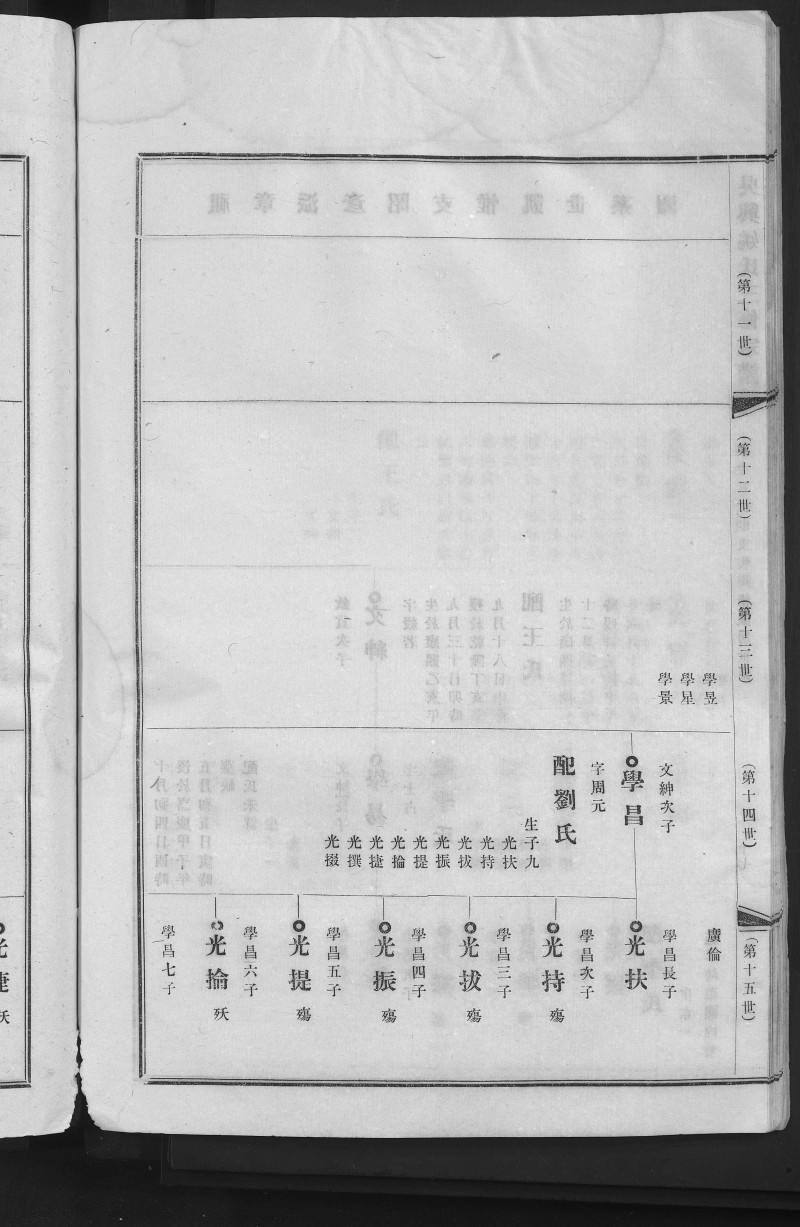 (第十一世)
(第十二世)
(第十三世)
學昱
學星
學景
(第十四世)
文紳次子
學昌
字周元
配劉氏
生子九
光扶
光持
光拔
光振
光提
光掄
光捷
光撰
光掇
(第十五世)
廣倫
學昌長子
光扶
學昌次子
光持 殤
學昌三子
光拔 殤
學昌四子
光振 殤
學昌五子
光提 殤
學昌六子
光掄 殀
學昌七子
光捷 殀